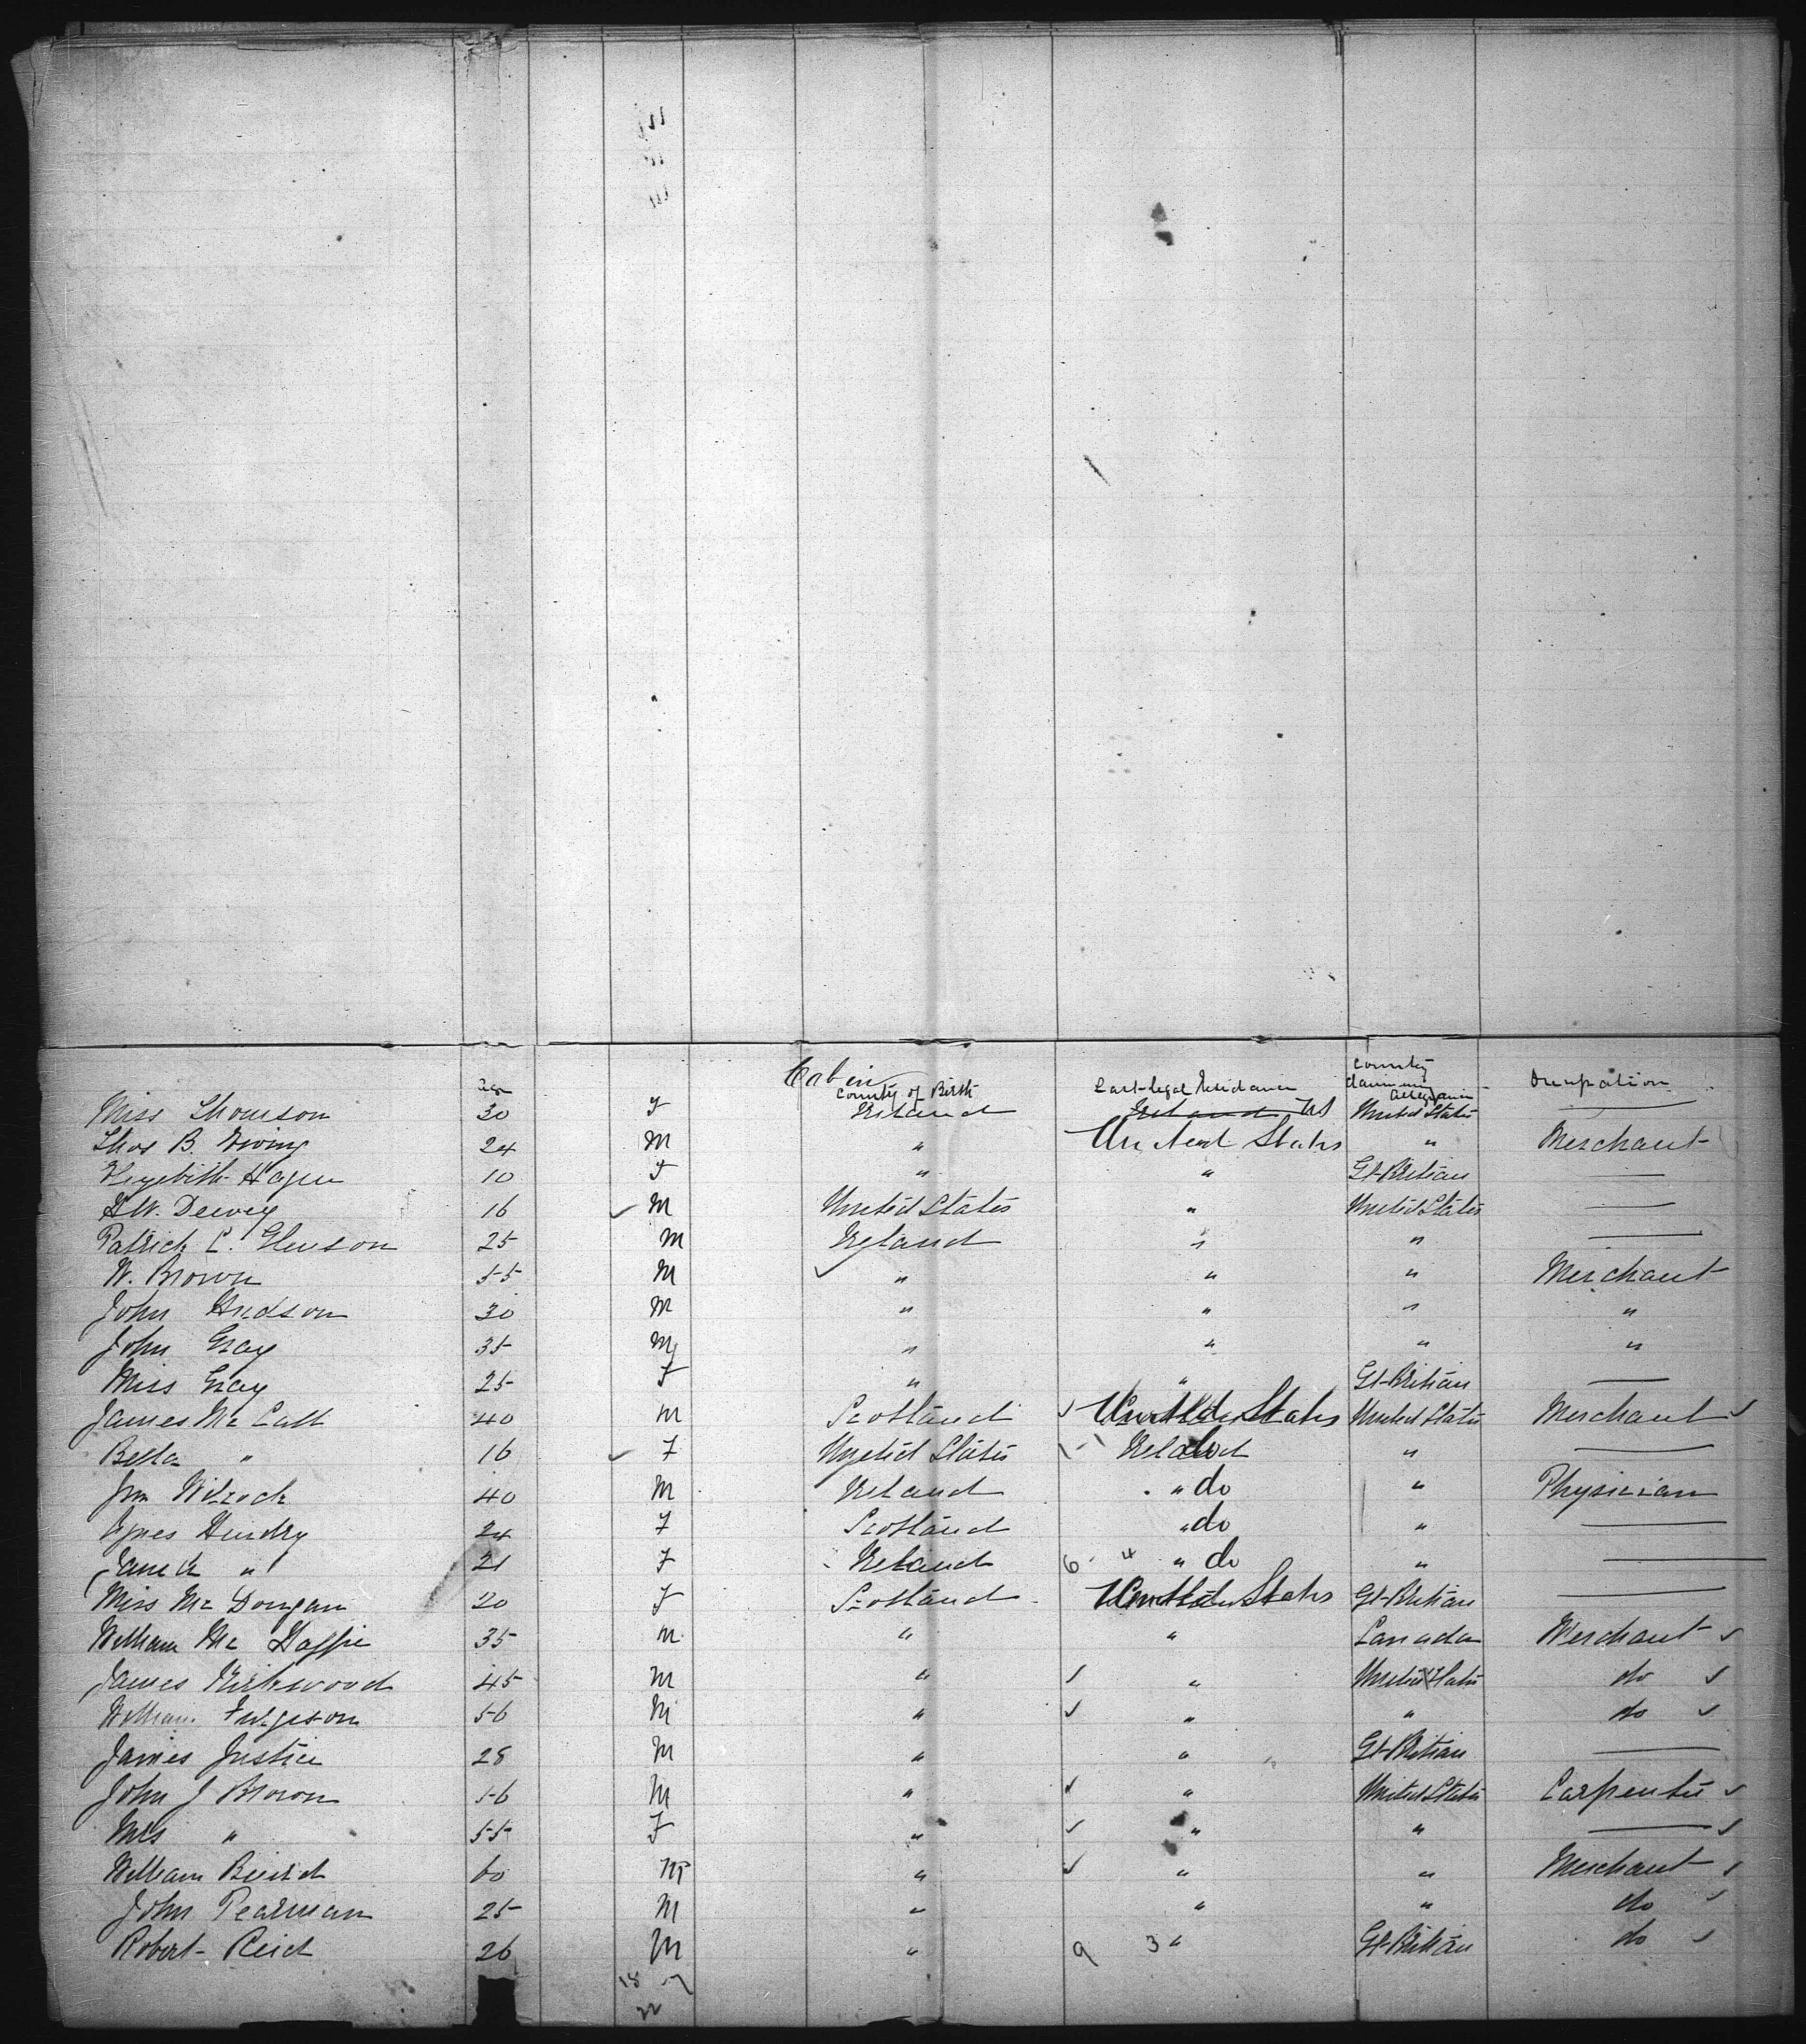 Cabin
Age County of Birth Last legal Residence County claiming allegiance Occupation
Miss Thomson 30 F Ireland Ireland US United States —
Thos B. Irving 24 M " United States " Merchant
Hagen 10 F " " Gt Britian —
HW. Dewey 16 ✓ M United States " United States —
Patrick C. Glenson 25 M Ireland " " —
W. Brown 55 M ✓ " " " Merchant
John Hudson 30 M " " " "
John Gray 35 M " " " "
Miss Gray 25 F " " Gt Britian —
James Mc Call 40 M Scotland ✓ United States United States Merchant ✓
Bella " 16 ✓ F United States 1 Ireland " —
40 M Ireland " do " Physician
Agnes Hendry 24 F Scotland " do " —
Jane " 21 F Ireland 6 4 " do " —
Miss Mc Dougan 20 F Scotland United States Gt Britian —
William Mc Haffie 35 M " " Canada Merchant ✓
James Kirkwood 45 M " ✓ " United States do ✓
William Furgeson 56 M " ✓ " " do ✓
James Justice 28 M " " Gt Britian —
John J Brown 56 M " ✓ " United States Carpenter ✓
Mrs " 55 F " ✓ " " — ✓
William 60 M " ✓ " " Merchant ✓
John Pearman 25 M " " " do ✓
Robert Reid 26 M " 9 3 " Gt Britian do ✓
18 7
22